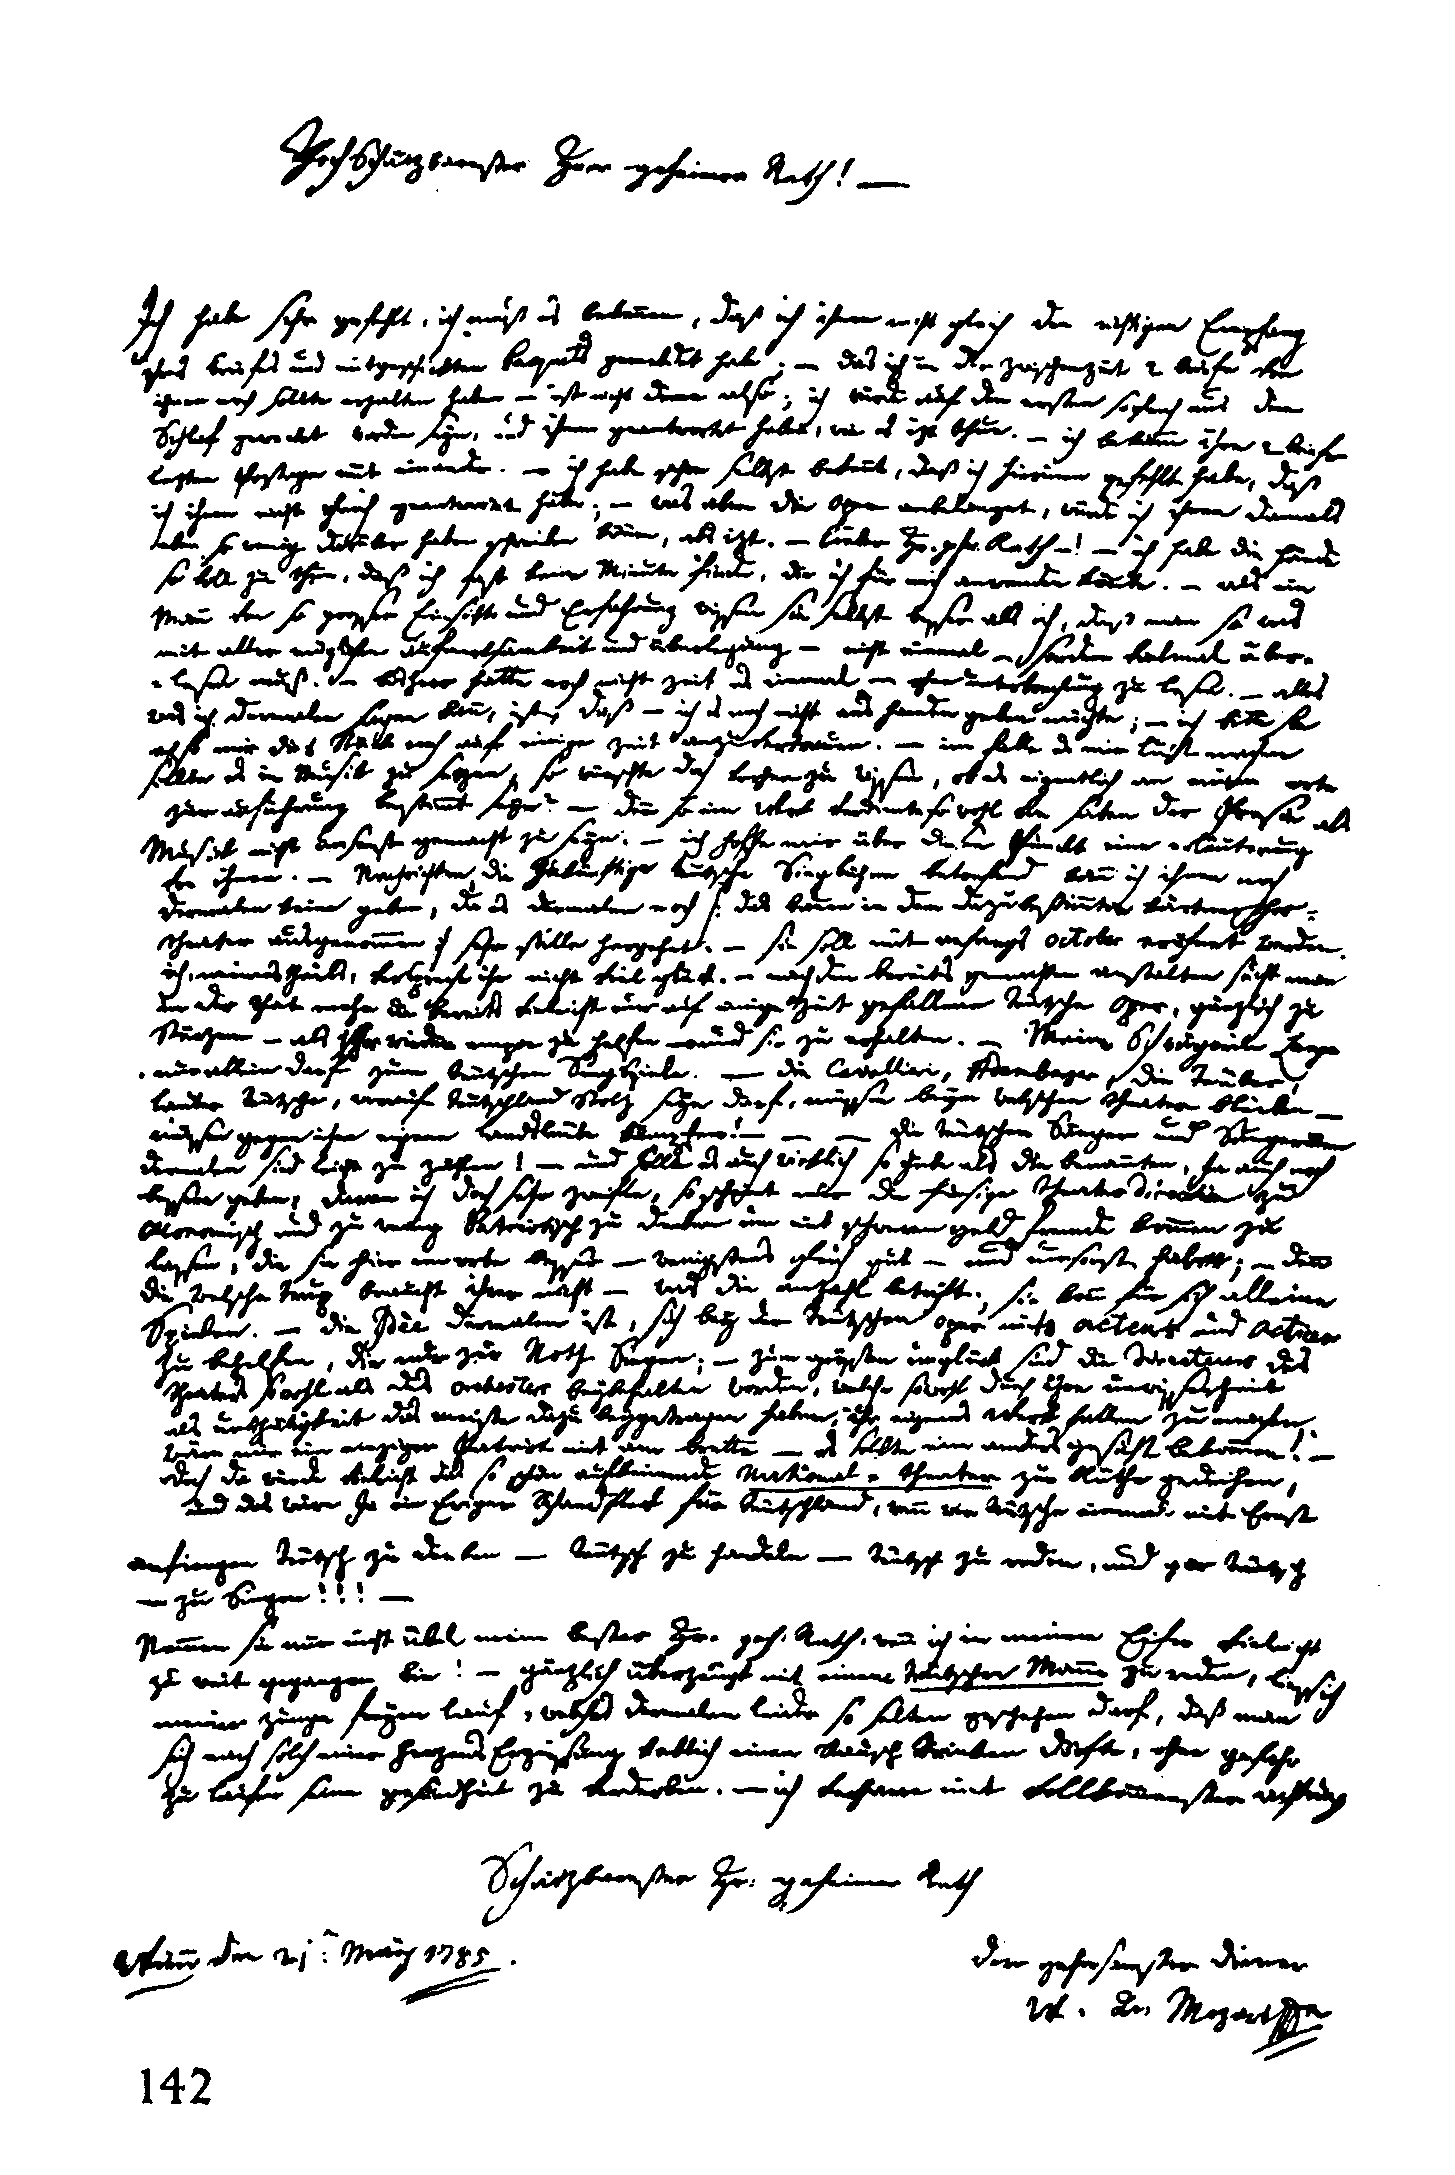 HochSchäzbarester Herr geheimer Rath! —
Ich habe sehr gefehlt, ich muß es bekennen, daß ich ihnen nicht gleich den richtigen Empfang
ihres briefes und mitgeschickten Paquets gemeldet habe; — das ich in der zwischenzeit 2 briefe von
ihnen noch sollte erhalten haben — ist nicht deme also; ich würde auf den ersten sogleich aus dem
Schlaf gewecket worden seyn, und ihnen geantwortet haben, wie es izt thue. — ich bekamm ihre 2 briefe
lezten Posttage mit einander. — ich habe schon selbst bekennt, daß ich hierinne gefehlt habe, daß
ich ihnen nicht gleich geantwortet habe; — was aber die oper anbelanget, würde ich ihnen damals
eben so wenig darüber haben schreiben können, als izt. — lieber Hr. geh. Rath —! — ich habe die hände
so voll zu thun, daß ich fast keine Minute finde, die ich für mich anwenden könnte. — als ein
Mann von so grosser Einsicht und Erfahrung wissen sie selbst besser als ich, daß man so was
mit aller möglichen aufmerksamkeit und überlegung — nicht einmal — sondern vielmal über-
-lesen muß. — bisher hatte noch nicht zeit es einmal — ohne unterbrechung zu lesen. — alles
was ich dermalen sagen kann, ist, daß — ich es noch nicht aus handen geben möchte; — ich bitte sie
also mir das Stück noch auf einige zeit anzuvertrauen. — im falle es mir lust machen
sollte es in Musik zu sezen, so wünschte doch bevor zu wissen, ob es eigentlich an einem orte
zur aufführung bestimmt seye? — denn so ein Werk verdiente so wohl von seiten der Poesie als
Musik nicht umsonst gemacht zu seyn. — ich hoffe mir über diesen Punkt eine erläuterung
von ihnen. — Nachrichten die zukünftige teutsche Singbühne betreffend kann ich ihnen noch
dermalen keine geben, da es dermalen noch /: das bauen in dem dazu bestimmten kärntnerthor-
theater ausgenommen :/ sehr stille hergehet. — sie soll mit anfangs october eröfnet werden.
ich, meines theils, verspreche ihr nicht viel glück. — nach den bereits gemachten anstalten sucht man
in der that mehr die bereits vieleicht nur auf einige zeit gefallene teutsche oper, gänzlich zu
stürzen — als ihr wieder empor zu helfen — und sie zu erhalten. — Meine Schwägerin Lange
nur allein darf zum teutschen Singspiele. — die Cavallieri, Adamberger, die Teuber,
lauter teutsche, worauf teutschland stolz seyn darf, müssen beym welschen theater bleiben —
müssen gegen ihre eigene landsleute kämpfen! — — — die teutschen Sänger und Sängerinen
dermalen sind leicht zu zählen! — und sollte es auch wirklich so gute als die benannten, Ja auch noch
bessere geben, daran ich doch sehr zweifle, so scheint mir die hiesige theater Direction zu
oeconomisch und zu wenig Patriotisch zu denken um mit schwerem geld fremde kommen zu
lassen, die sie hier im orte besser — wenigstens gleich gut — und umsonst haben; — denn
die welsche trup braucht ihrer nicht — was die anzahl betrift; sie kann für sich alleine
Spielen. — die Idee dermalen ist, sich bey der teutschen oper mit acteurs und actricen
zu behelfen, die nur zur Noth Singen; — zum grösten unglück sind die Directeurs des
theaters sowohl als des orchesters beybehalten worden, welche sowohl durch ihre unwissenheit
als unthätigkeit das meiste dazu beygetragen haben, ihr eigenes Werk fallen zu machen.
wäre nur ein einziger Patriot mit am brette — es sollte ein anders gesicht bekommen! —
doch da würde vieleicht das so schön aufkeimende National-theater zur blüthe gedeihen,
und das wäre Ja ein Ewiger Schandfleck für teutschland, wenn wir teutsche einmal mit Ernst
anfiengen teutsch zu denken — teutsch zu handeln — teutsch zu reden, und gar teutsch
— zu Singen!!! —
Nemmen sie nur nicht übel mein bester Hr. geh. Rath, wenn ich in meinem Eyfer vieleicht
zu weit gegangen bin! — gänzlich überzeugt mit einem teutschen Manne zu reden, ließ ich
meiner zunge freyen lauf, welches dermalen leider so selten geschehen darf, daß man
sich nach solch einer herzens Ergiessung kecklich einen Rausch trinken dürfte, ohne gefahr
zu laufen seine gesundheit zu verderben. — ich verharre mit vollkommenster achtung
Schäzbarester Hr: geheimer Rath
Wienn den 21:t März 1785.
dero gehorsamster diener
W. A. Mozart
142